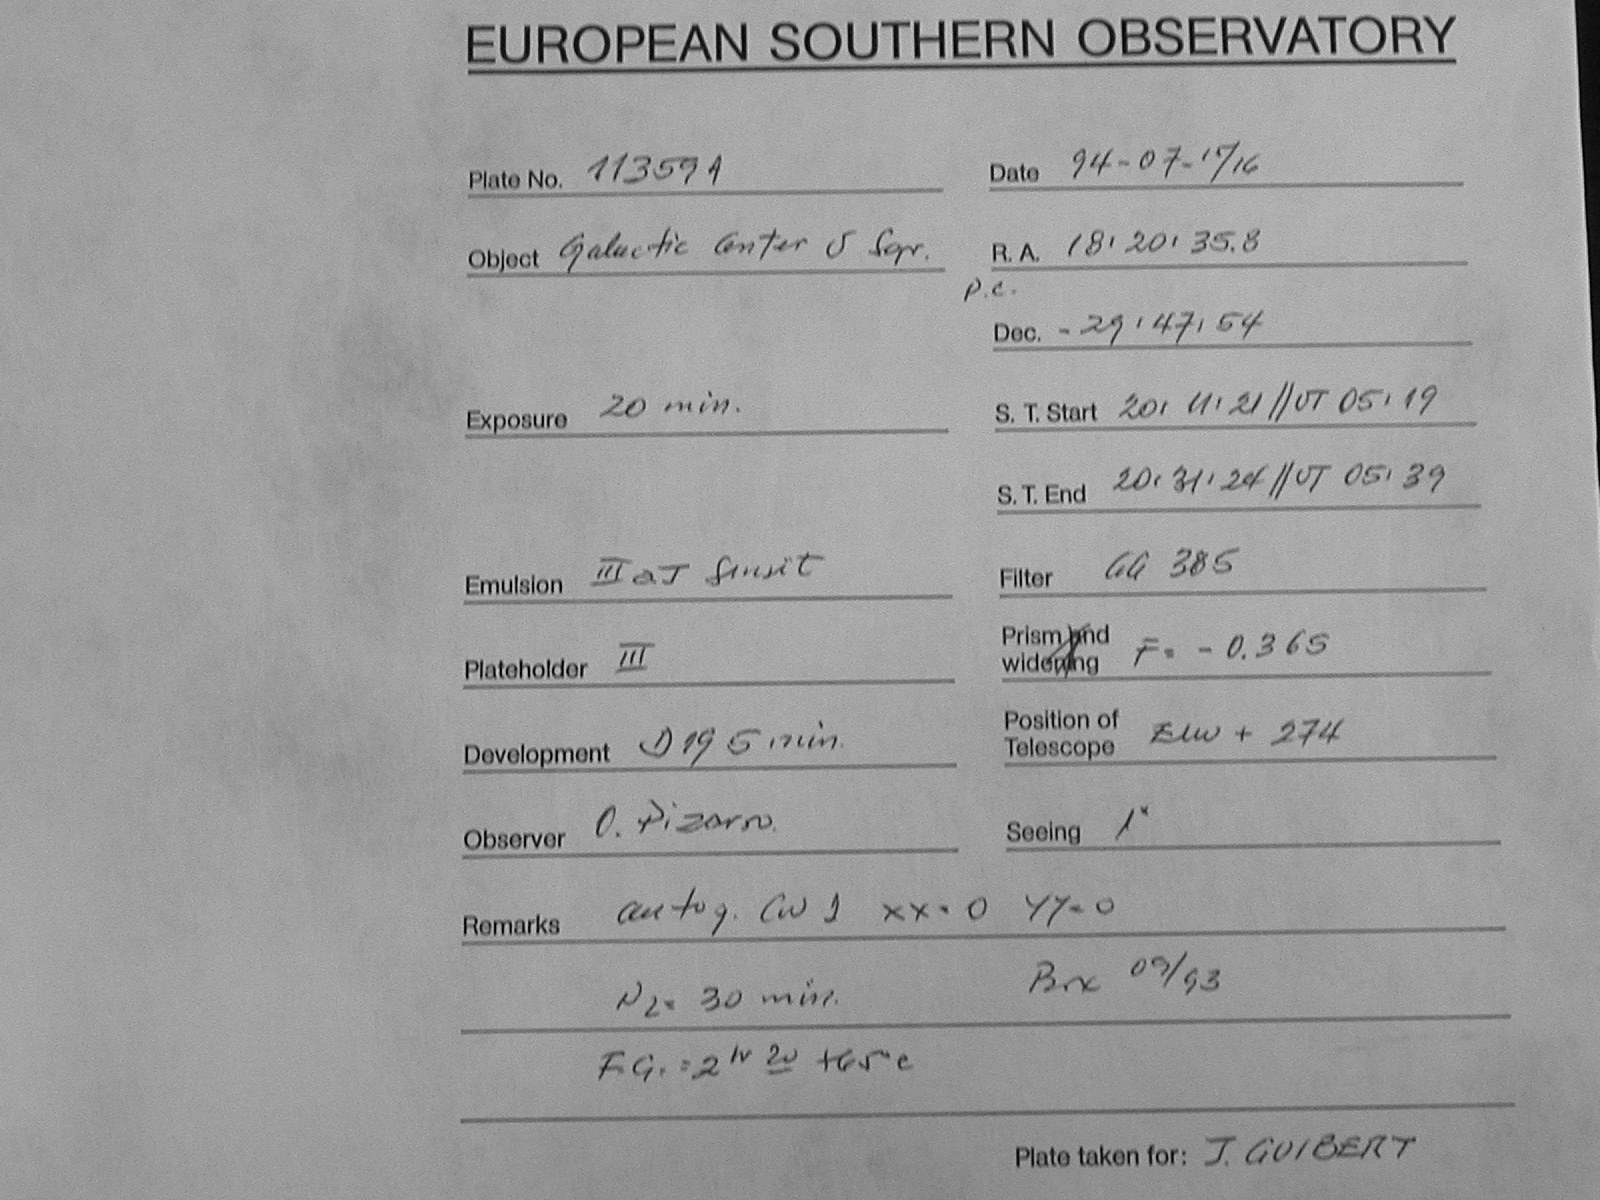 EUROPEAN SOUTHERN OBSERVATORY
Plate No. 11359A Date 94-07-17/16
Object Galactic Center 5 Sgr. R. A. 18 20 35.8
p.c.
Dec. - 29 47 54
Exposure 20 min. S. T. Start 20 11 21 // UT 05 19
S. T. End 20 31 24 // UT 05 39
Emulsion IIIaJ Sensit Filter GG 385
Plateholder III Prism and widening F= - 0.365
Development D19 5 min. Position of Telescope EUW + 274
Observer O. Pizarro. Seeing 1"
Remarks autog. CW 1 xx=0 YY=0
N2= 30 min. Box 09/93
F.G. = 2 hr 20 +65°c
Plate taken for: J. GUIBERT